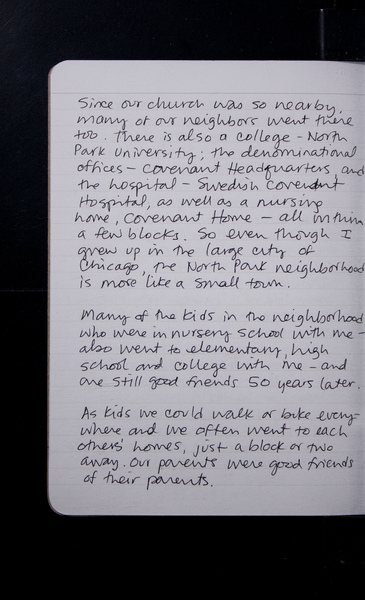 Since our church was so nearby,
many of our neighbors went there
too. There is also a college - North
Park University; the denominational
offices - Covenant Headquarters, and
the hospital - Swedish Covenant
Hospital, as well as a nursing
home, Covenant Home - all within
a few blocks. So even though I
grew up in the large city of
Chicago, the North Park neighborhood
is more like a small town.

Many of the kids in the neighborhood
who were in nursery school with me -
also went to elementary, high
school and college with me - and
are still good friends 50 years later.

As kids we could walk or bike every-
where and we often went to each
others' homes, just a block or two
away. Our parents were good friends
of their parents.